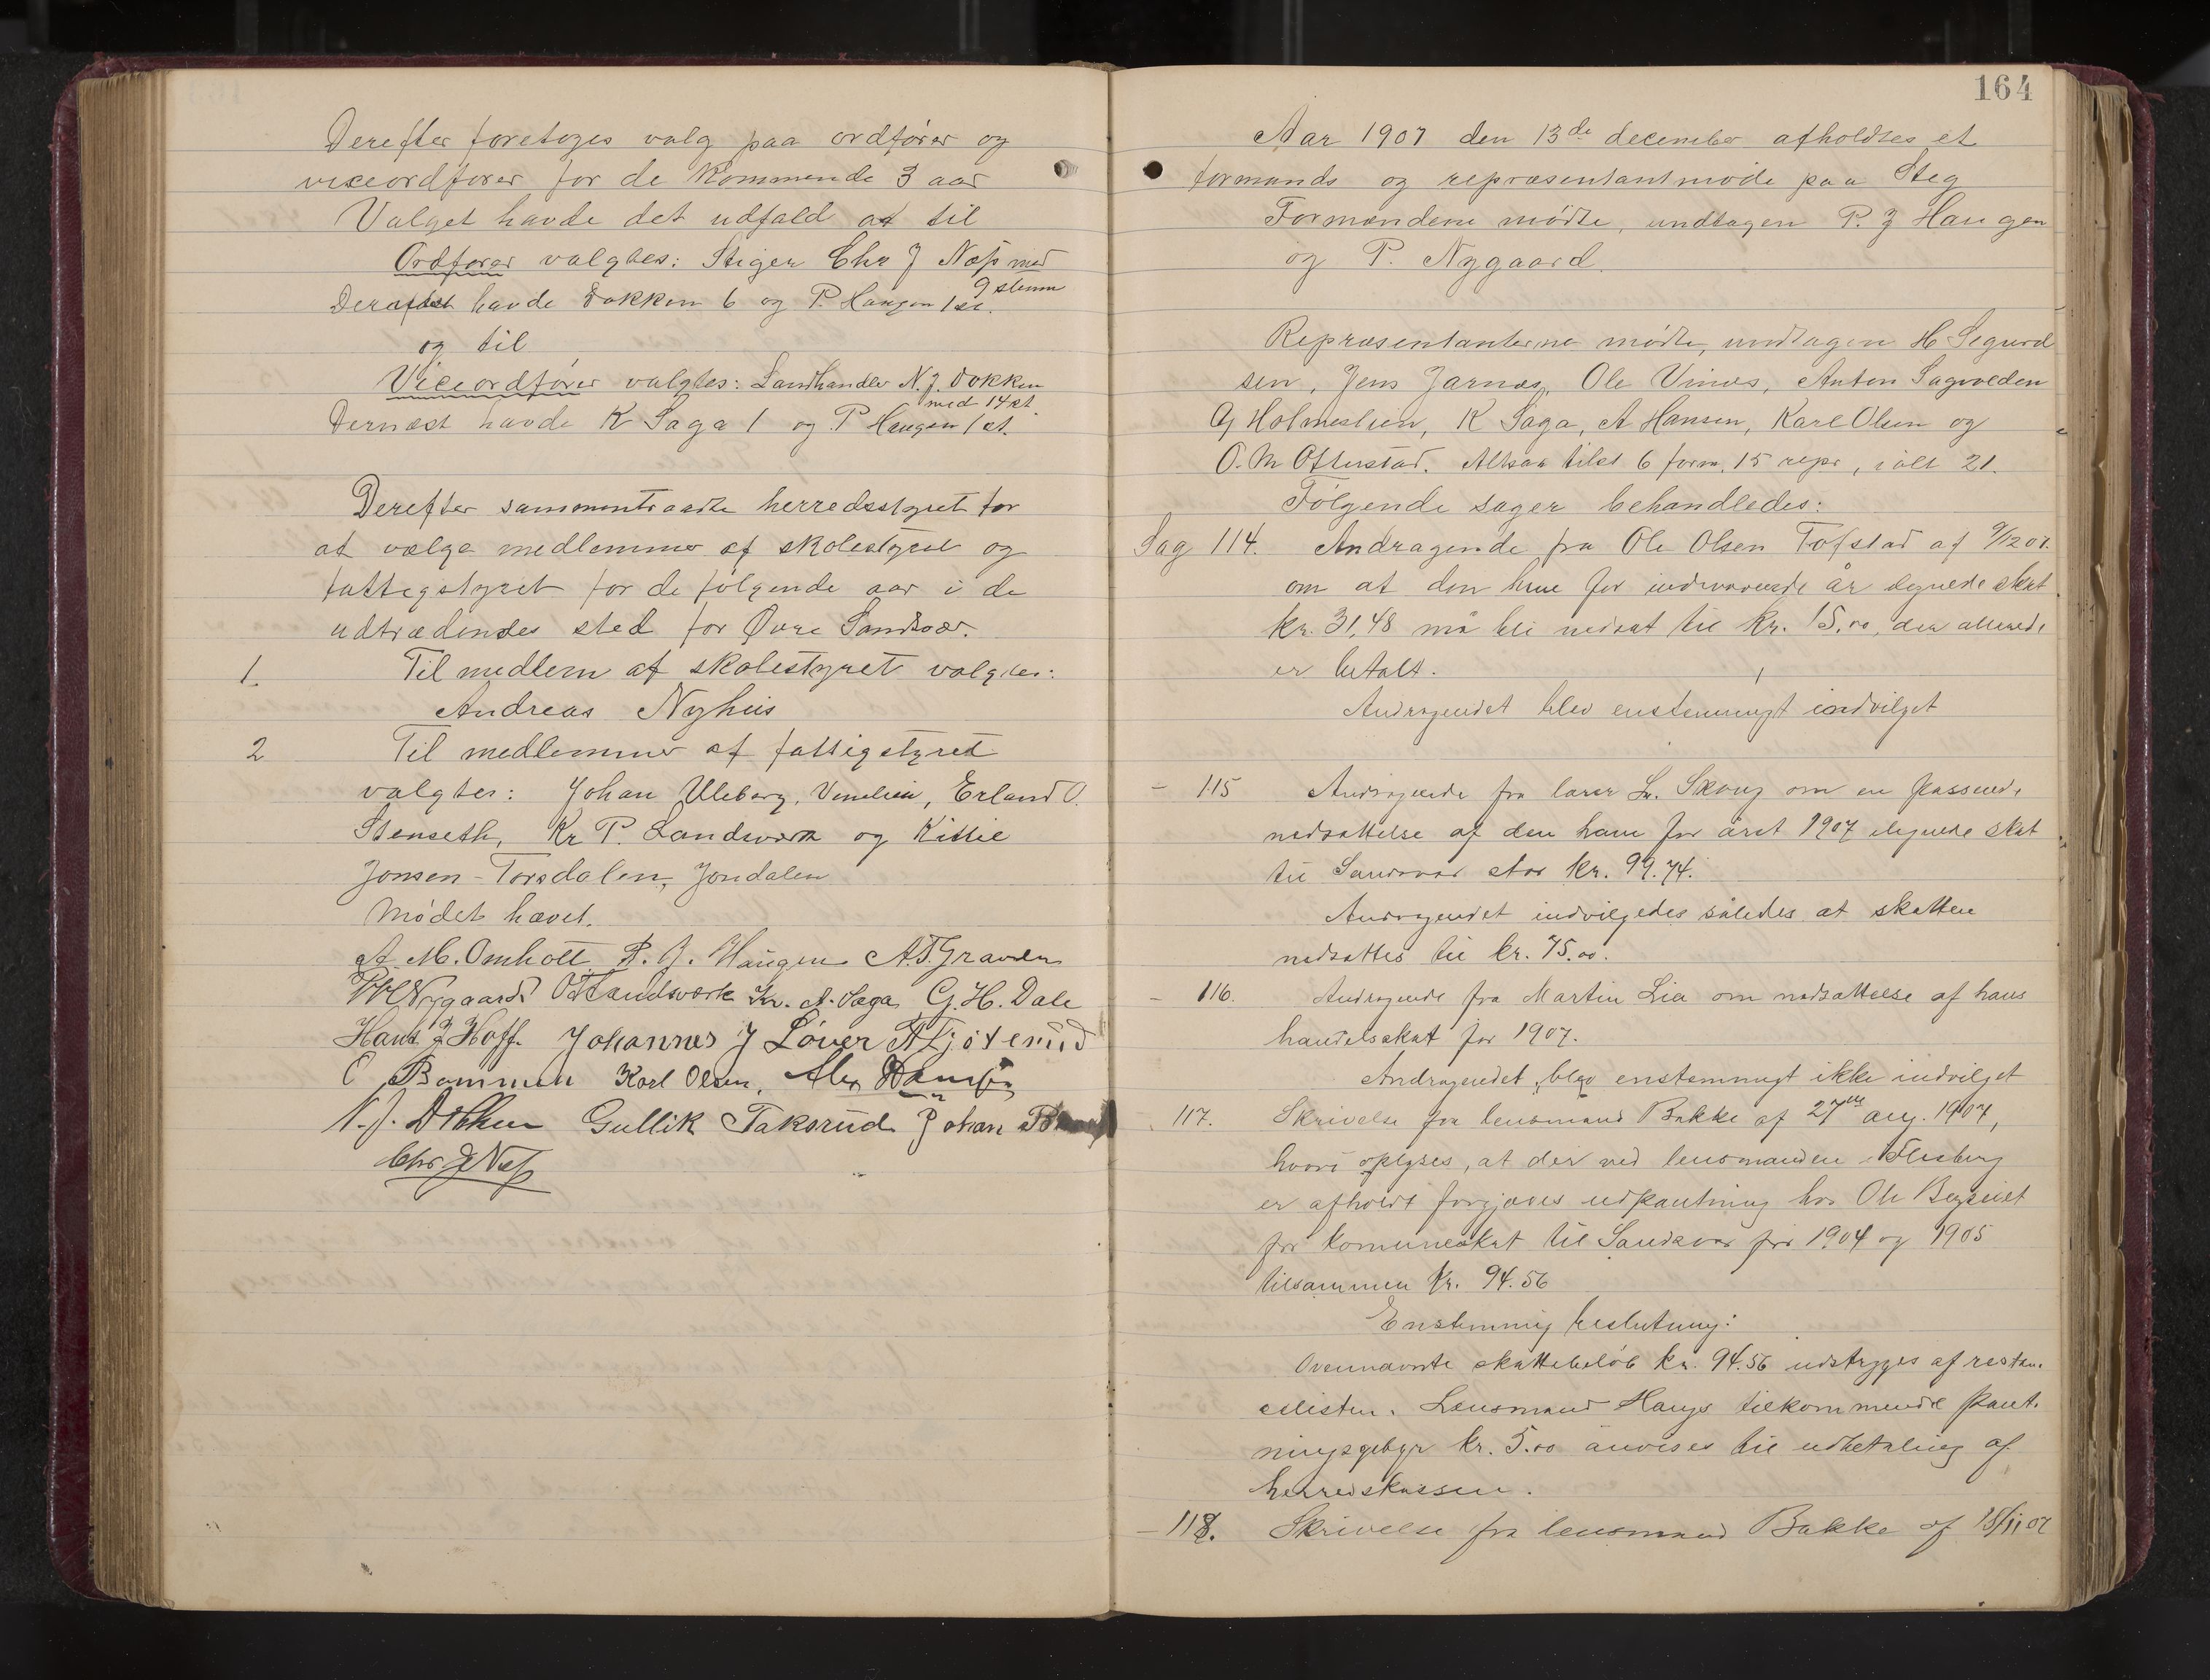 Derefter foretoges valg paa ordfører og
viceordfører for de kommende 3 aar
Valget havde det udfald at til
Ordfører valgtes: Stiger Chr J Næss med
9 stemm
havde Dokken 6 og P. Haugen 1 st.
og til
Viceordfører valgtes: Landhandler N. J. Dokken
med 14 st.
Dernæst havde K Saga 1 og P Haugen 1 st.
Derefter sammentraadte herredsstyret for
at vælge medlemmer af skolestyret og
fattigstyret for de følgende aar i de
udtrædendes sted for Øvre Sandsvær.
1. Til medlem af skolestyret valgtes:
Andreas Nyhus
2 Til medlemmer af fattigstyret
valgtes: Johan Uleberg, Erland O.
Stenseth, Kr P. Landsværk og Kittil
Jonsen-Torsdalen, Jondalen
Mødet hævet.
A. M. Omholt P. J. Haugen A.T. Graven
Nygaard Landsværk Kr. A. Saga G. H. Dale
Hans J Hoff. Johannes J Løver
O Bommen Karl Olsen, Alex Hansen
N. J. Dokken Gullik Taksrud Johan
Chr J Næss
164
Aar 1907 den 13de december afholdtes et
formands og repræsentantmøde paa Steg
Formændene mødte, undtagen P. J Haugen
og P. Nygaard.
Repræsentanterne mødte, undtagen H Sigurd
sen, Jens Jarnæs, Ole Vinæs, Anton Sagvolden
G Holmeslien, K Saga, A Hansen, Karl Olsen og
O. M Ofterstad. Altsaa tilst 6 form. 15 repr, ialt 21.
Følgende sager behandledes:
Sag 114. Andragende fra Ole Olsen Tofstad af 9/12 07.
om at den ham for indeværende år ilignede skat
kr. 31,48 må bli nedsat til kr. 15.00, der allerede
er betalt.
Andragendet blev enstemmigt indvilget
- 115 Andragende fra lærer L. Skoug om en passende
nedsættelse af den ham for året 1907 ilignede skat
til Sandsvær stor kr. 99.74.
Andragendet indvilgedes således at skatten
nedsættes til kr. 75.00.
- 116. Andragende fra Martin Lia om nedsættelse af hans
handelsskat for 1907.
Andragendet blev enstemmigt ikke indvilget
117. Skrivelse fra lensmand Bakke af 27de aug. 1907,
hvori oplyses, at der ved lensmanden i Flesberg
er afholdt forgjæves udpantning hos Ole
for komuneskat til Sandsvær for 1904 og 1905
tilsammen kr. 94.56
Enstemmig beslutning:
Ovennævnte skattebeløb kr. 94.56 udstryges af restan-
celisten. Lensmand Haugs tilkommende pant-
ningsgebyr kr. 5.00 anvises til udbetaling af
herredskassen.
- 118. Skrivelse fra lensmand Bakke af 15/11 07